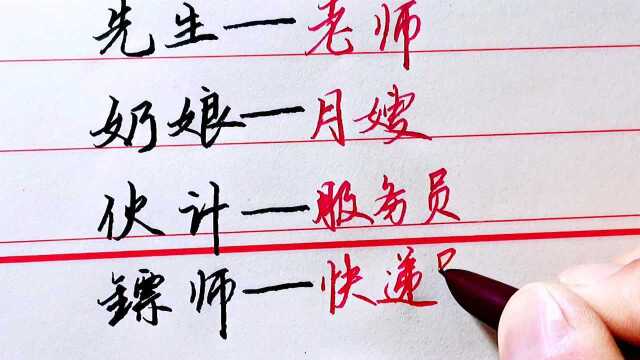 先生一老师
奶娘一月嫂
伙计一服务员
镖师一快递